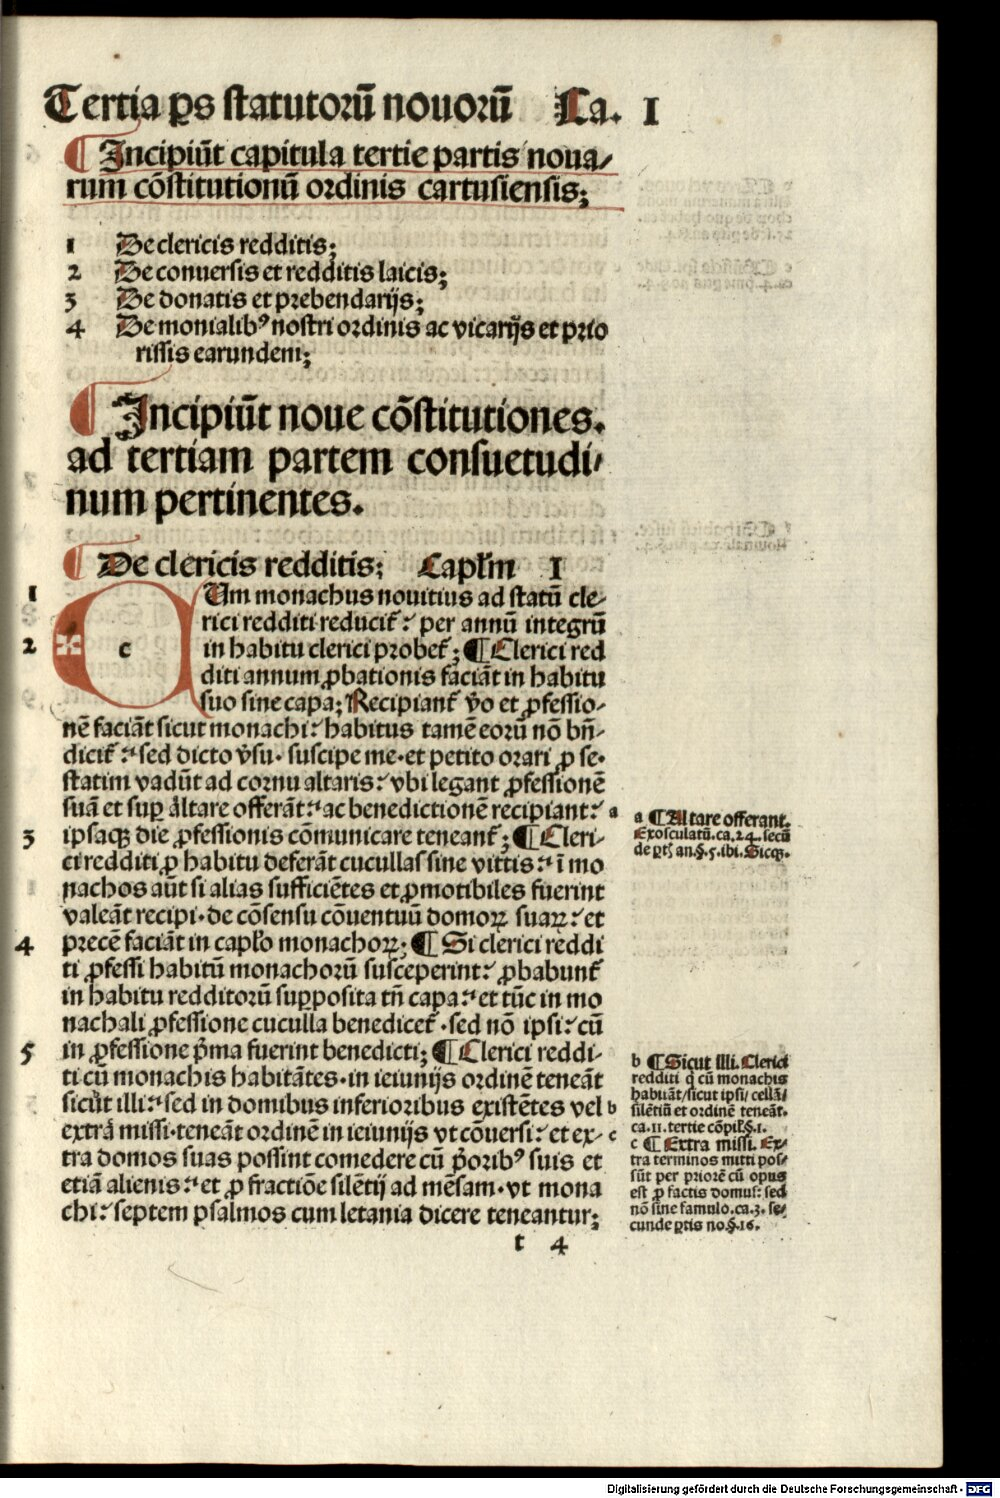 Tertia ꝑs statutorū nouorū Ca. I
¶ Incipiūt capitula tertie partis noua⸗
rum cōstitutionū ordinis cartusiensis;
1 De clericis redditis;
2 De conuersis et redditis laicis;
3 De donatis et prebendarijs;
4 De monialibꝰ nostri ordinis ac vicarijs et prio
rissis earundem;
¶ Incipiūt noue cōstitutiones.
ad tertiam partem consuetudi⸗
num pertinentes.
¶ De clericis redditis; Caplm̄ I
1 CUm monachus nouitius ad statū cle⸗
rici redditi reducit᷑: per annū integrū
2 in habitu clerici probet᷑; ¶ Clerici red
diti annum ꝓbationis faciāt in habitu
suo sine capa; Recipiant᷑ v̄o et ꝓfessio⸗
nē faciāt sicut monachi: habitus tamē eorū nō bn̄⸗
dicit᷑: sed dicto v̄su. suscipe me. et petito orari ꝓ se.
statim vadūt ad cornu altaris: vbi legant ꝓfessionē
suā et suꝑ altare offerāt: ac benedictionē recipiant: a
3 ipsaqꝫ die ꝓfessionis cōmunicare teneant᷑; ¶ Cleri⸗
ci redditi ꝓ habitu deferāt cucullas sine vittis: ī mo
nachos aūt si alias sufficiētes et ꝓmotibiles fuerint
valeāt recipi. de cōsensu cōuentuū domoꝝ suaꝝ: et
4 precē faciāt in caplo monachoꝝ; ¶ Si clerici reddi
ti ꝓfessi habitū monachorū susceperint: ꝓbabunt᷑
in habitu redditorū suꝑposita tn̄ capa: et tūc in mo
nachali ꝓfessione cuculla benedicet᷑. sed nō ipsi: cū
5 in ꝓfessione p̄ma fuerint benedicti; ¶ Clerici reddi⸗
ti cū monachis habitātes. in ieiunijs ordinē teneāt
sicut illi: sed in domibus inferioribus existētes vel b
extra missi. teneāt ordinē in ieiunijs vt cōuersi: et ex⸗ c
tra domos suas possint comedere cū p̄oribꝰ suis et
etiā alienis: et ꝓ fractiōe silētij ad mēsam. vt mona
chi: septem psalmos cum letania dicere teneantur;
t 4
a ¶ Altare offerant.
Exosculatū. ca. 24. secū
de ꝑtꝭ an. §. 5. ibi. Sicqꝫ.
b ¶ Sicut illi. Clerici
redditi q̄ cū monachis
habitāt/ sicut ipsi/ cellā/
silētiū et ordinē teneāt.
ca. 11. tertie cōpil. §. 1.
c ¶ Extra missi. Ex⸗
tra terminos mitti pos⸗
sūt per priorē cū opus
est ꝓ factis domus: sed
nō sine famulo. ca. 3. se⸗
cunde ꝑtis no. §. 16.
Digitalisierung gefördert durch die Deutsche Forschungsgemeinschaft - DFG